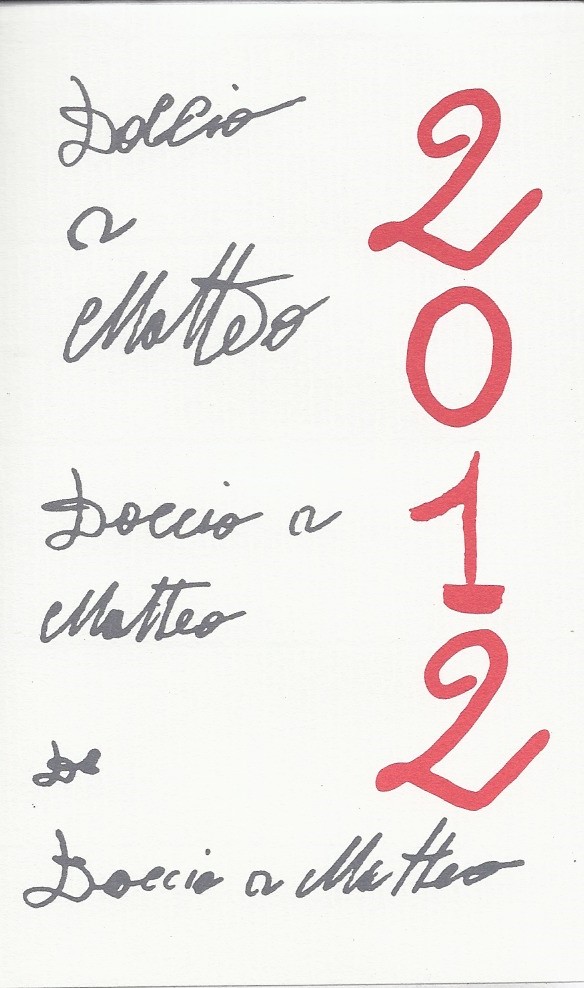 Doccio
a
Matteo
Doccio a
Matteo
Do
Doccio a Matteo
2012